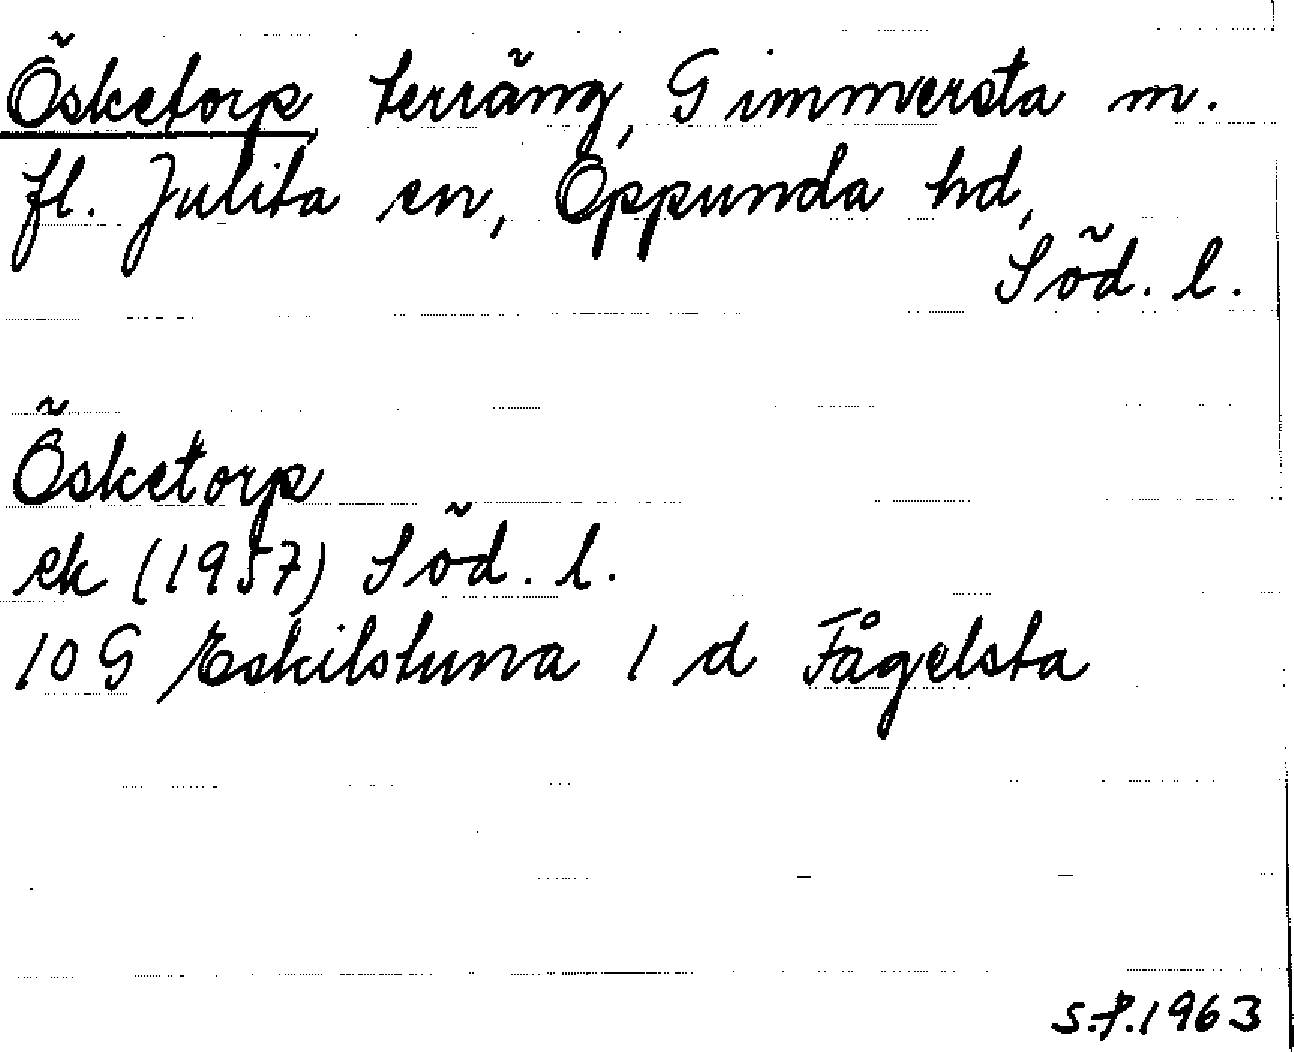 Ösketorp, terräng, Gimmersta m.
fl. Julita sn, Oppunda hd,
Söd. l.
Ösketorp
ek (1957) Söd. l.
10 G Eskilstuna 1 d Fågelsta
S.F. 1963